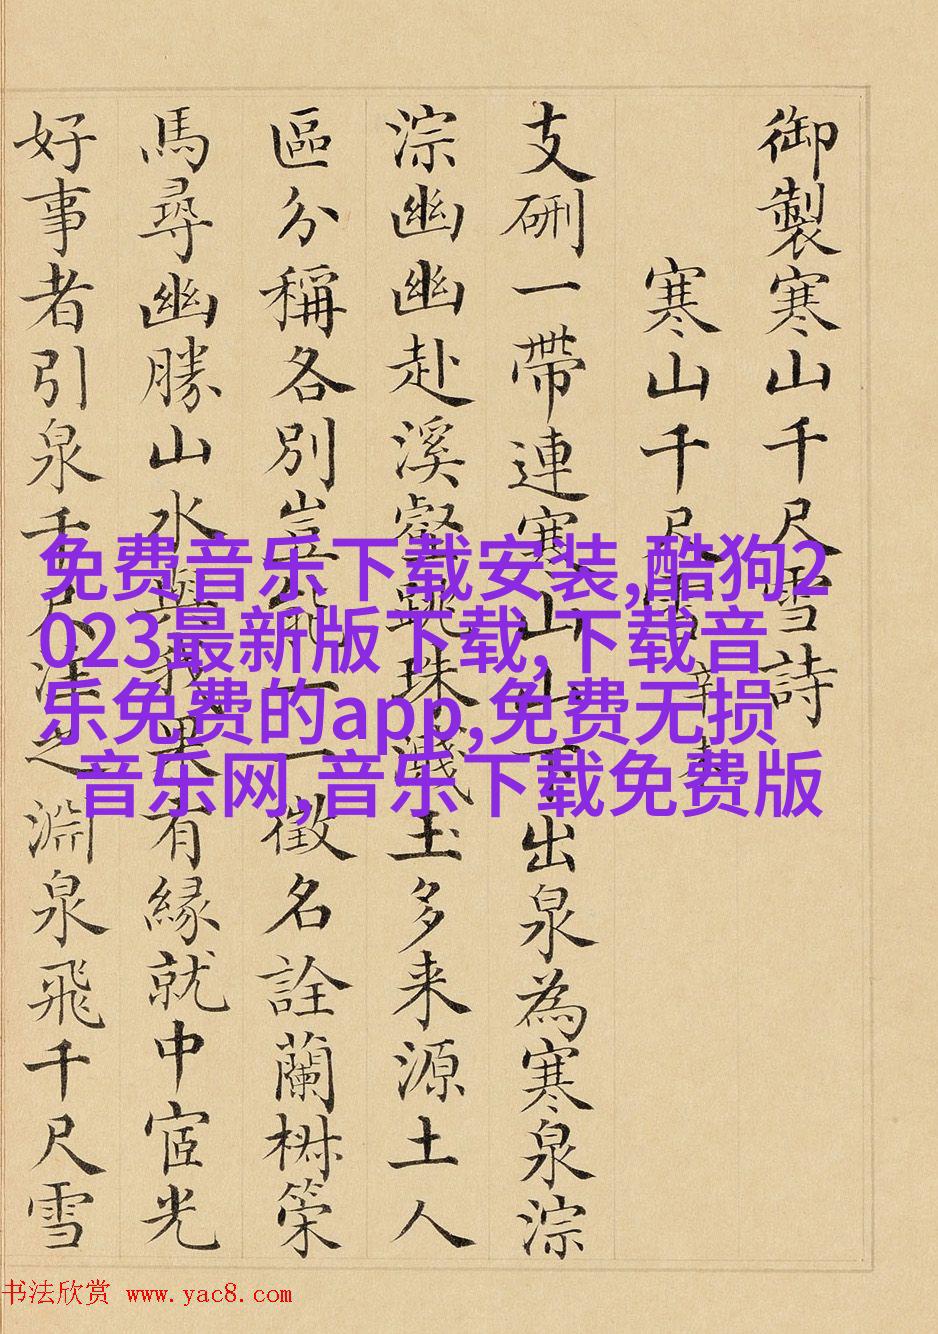 御製寒山千尺雪詩
寒山千尺雪 辛未
支硎一帶連寒山山下出泉為寒泉淙
淙幽幽赴溪壑跳珠濺玉多来源土人
區分稱各別豈能一一徵名詮蘭椒策
馬尋幽勝山水與我果有緣就中宧光
好事者引泉千尺注之淵泉飛千尺雪
免费音乐下载安装,酷狗2
023最新版下载,下载音
乐免费的app,免费无损
音乐网,音乐下载免费版
书法欣赏 www.yac8.com